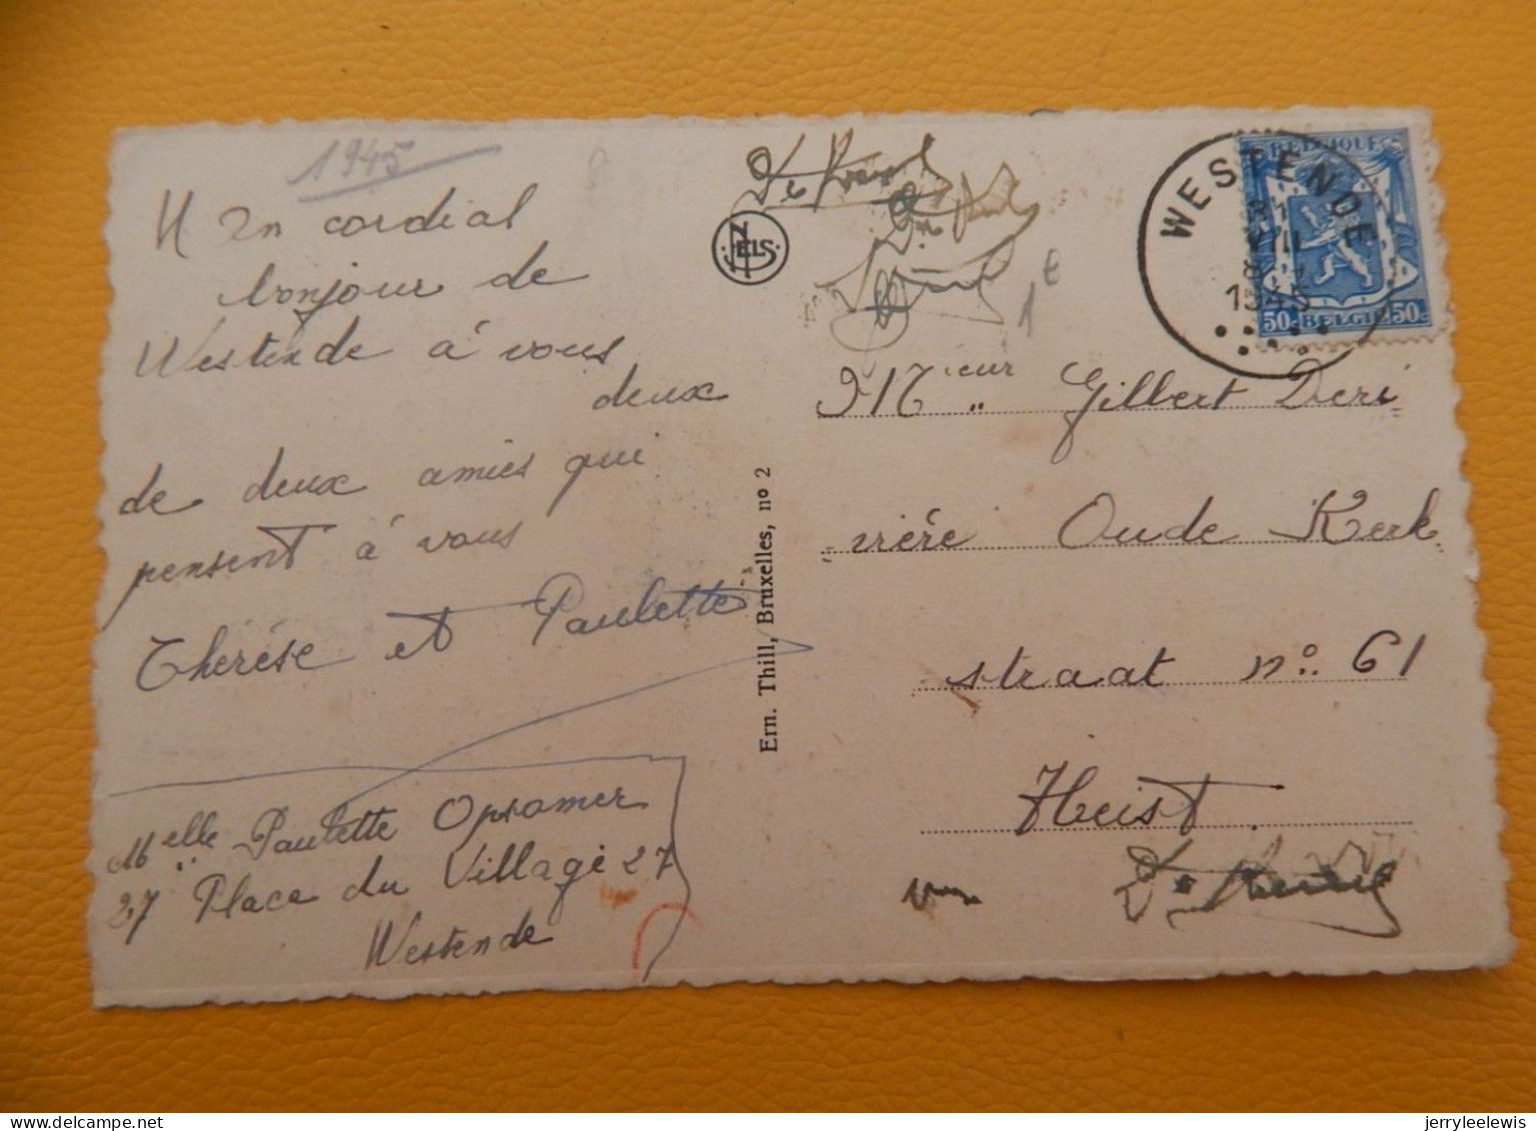 1945
Un cordial
bonjour de
Westende à vous
deux
de deux amies qui
pensent à vous
Thérèse et Paulette
Melle Paulette Opsomer
27 Place du Village 27
Westende
NELS
Ern. Thill, Bruxelles, nº 2
1 €
WESTENDE
1945
BELGIQUE
50c BELGIE 50c
Mr ieur Gilbert Deri
vière Oude Kerk
straat nº 61
Heist
jerryleelewis